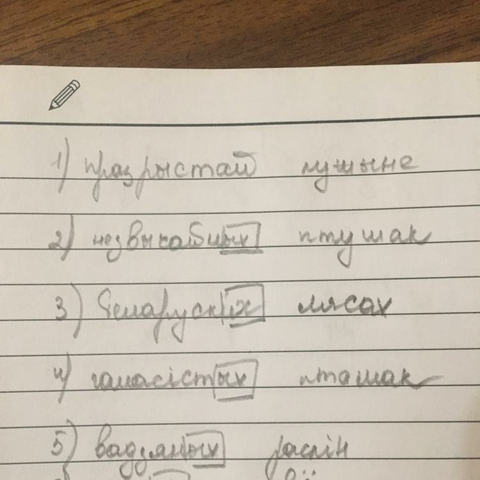 1) празрыстай лушыне
2) незвычайных птушак
3) беларускіх лясах
4) галасістых пташак
5) вадзяных раслін